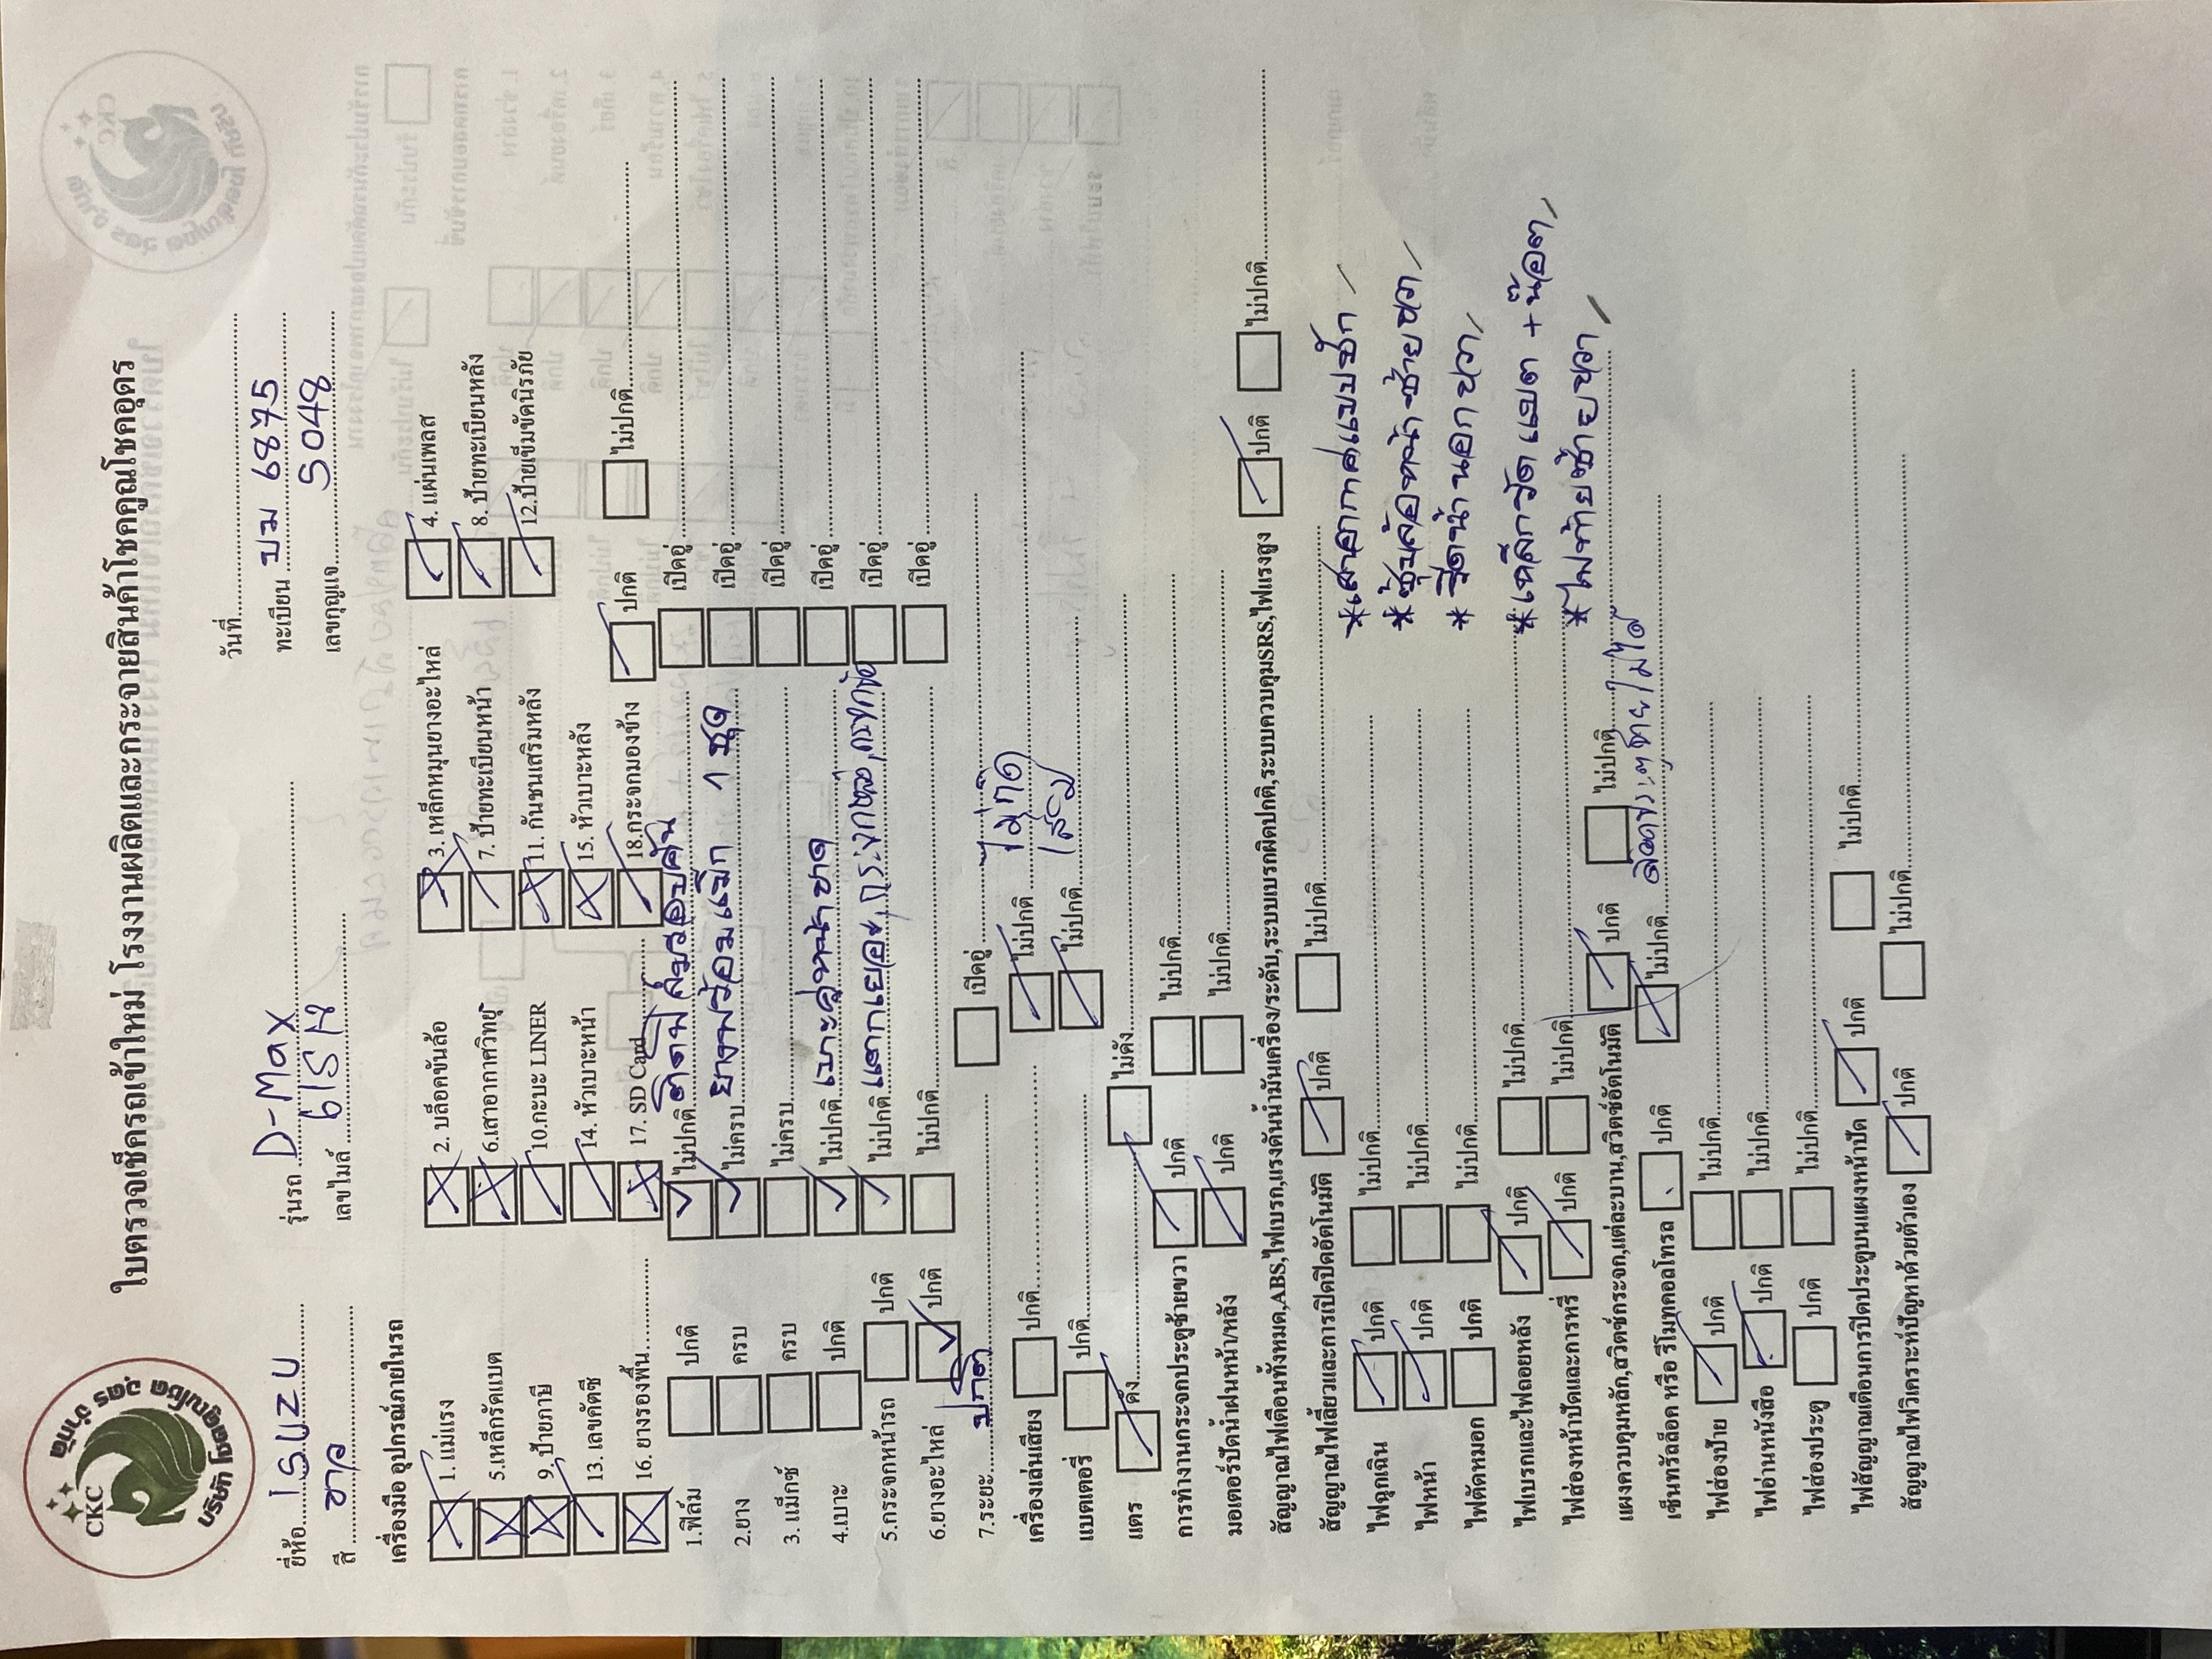 CKC
บริษัท โชคคูณโชค อุดร จำกัด
ใบตรวจเช็ครถเข้าใหม่ โรงงานผลิตและกระจายสินค้าโชคคูณโชคอุดร
วันที่
ยี่ห้อ ISUZU รุ่นรถ D-Max ทะเบียน บม 6875
สี ขาว เลขไมล์ เลขกุญแจ 5048
เครื่องมือ อุปกรณ์ภายในรถ
1. แม่แรง 2. บล็อคขันล้อ 3. เหล็กหมุนยางอะไหล่ 4. แผ่นเพลส
5.เหล็กรัดแบต 6.เสาอากาศวิทยุ 7. ป้ายทะเบียนหน้า 8. ป้ายทะเบียนหลัง
9. ป้ายภาษี 10.กะบะ LINER 11. กันชนเสริมหลัง 12.ป้ายเข็มขัดนิรภัย
13. เลขคัตซี 14. หัวเบาะหน้า 15. หัวเบาะหลัง
16. ยางรองพื้น 17. SD Card 18.กระจกมองข้าง ปกติ ไม่ปกติ
1.ฟิล์ม ปกติ ไม่ปกติ ติดฟิล์มรอบคัน เปิดอู่
2.ยาง ครบ ไม่ครบ ยางพร้อมแม็ก 1 ชุด เปิดอู่
3. แม็กซ์ ครบ ไม่ครบ เปิดอู่
4.เบาะ ปกติ ไม่ปกติ เบาะคู่หน้าขาด เปิดอู่
5.กระจกหน้ารถ ปกติ ไม่ปกติ แตกเยอะ, เปิดอู่
6.ยางอะไหล่ ปกติ ไม่ปกติ เปิดอู่
7.ระยะ ปกติ เปิดอู่
เครื่องเล่นเสียง ปกติ ไม่ปกติ ไม่ติด
แบตเตอรี่ ปกติ ไม่ปกติ เสื่อม
แตร ดัง ไม่ดัง
การทำงานกระจกประตูซ้ายขวา ปกติ ไม่ปกติ
มอเตอร์ปัดน้ำฝนหน้า/หลัง ปกติ ไม่ปกติ
สัญญาณไฟเตือนทั้งหมด,ABS,ไฟเบรก,แรงดันน้ำมันเครื่อง/ระดับ,ระบบเบรกผิดปกติ,ระบบควบคุมSRS,ไฟแรงสูง ปกติ ไม่ปกติ
สัญญาณไฟเลี้ยวและการเปิดปิดอัตโนมัติ ปกติ ไม่ปกติ
*เสาอากาศแบบชัก
ไฟฉุกเฉิน ปกติ ไม่ปกติ
*ซุ้มล้อหน้าซ้ายขวา
ไฟหน้า ปกติ ไม่ปกติ
*รีดน้ำนอกขวา
ไฟตัดหมอก ปกติ ไม่ปกติ
*เหล็กรัดแบต + น๊อต
ไฟเบรกและไฟถอยหลัง ปกติ ไม่ปกติ
*ไฟท้ายซ้ายขวา
ไฟส่องหน้าปัดและการหรี่ ปกติ ไม่ปกติ
แผงควบคุมหลัก,สวิตช์กระจก,แต่ละบาน,สวิตช์อัตโนมัติ ปกติ ไม่ปกติ
เซ็นทรัลล็อค หรือ รีโมทคอลโทรล ปกติ ไม่ปกติ
ไฟส่องป้าย ปกติ ไม่ปกติ
ไฟอ่านหนังสือ ปกติ ไม่ปกติ
ไฟส่องประตู ปกติ ไม่ปกติ
ไฟสัญญาณเตือนการปิดประตูบนแผงหน้าปัด ปกติ ไม่ปกติ
สัญญาณไฟวิเคราะห์ปัญหาด้วยตัวเอง ปกติ ไม่ปกติ